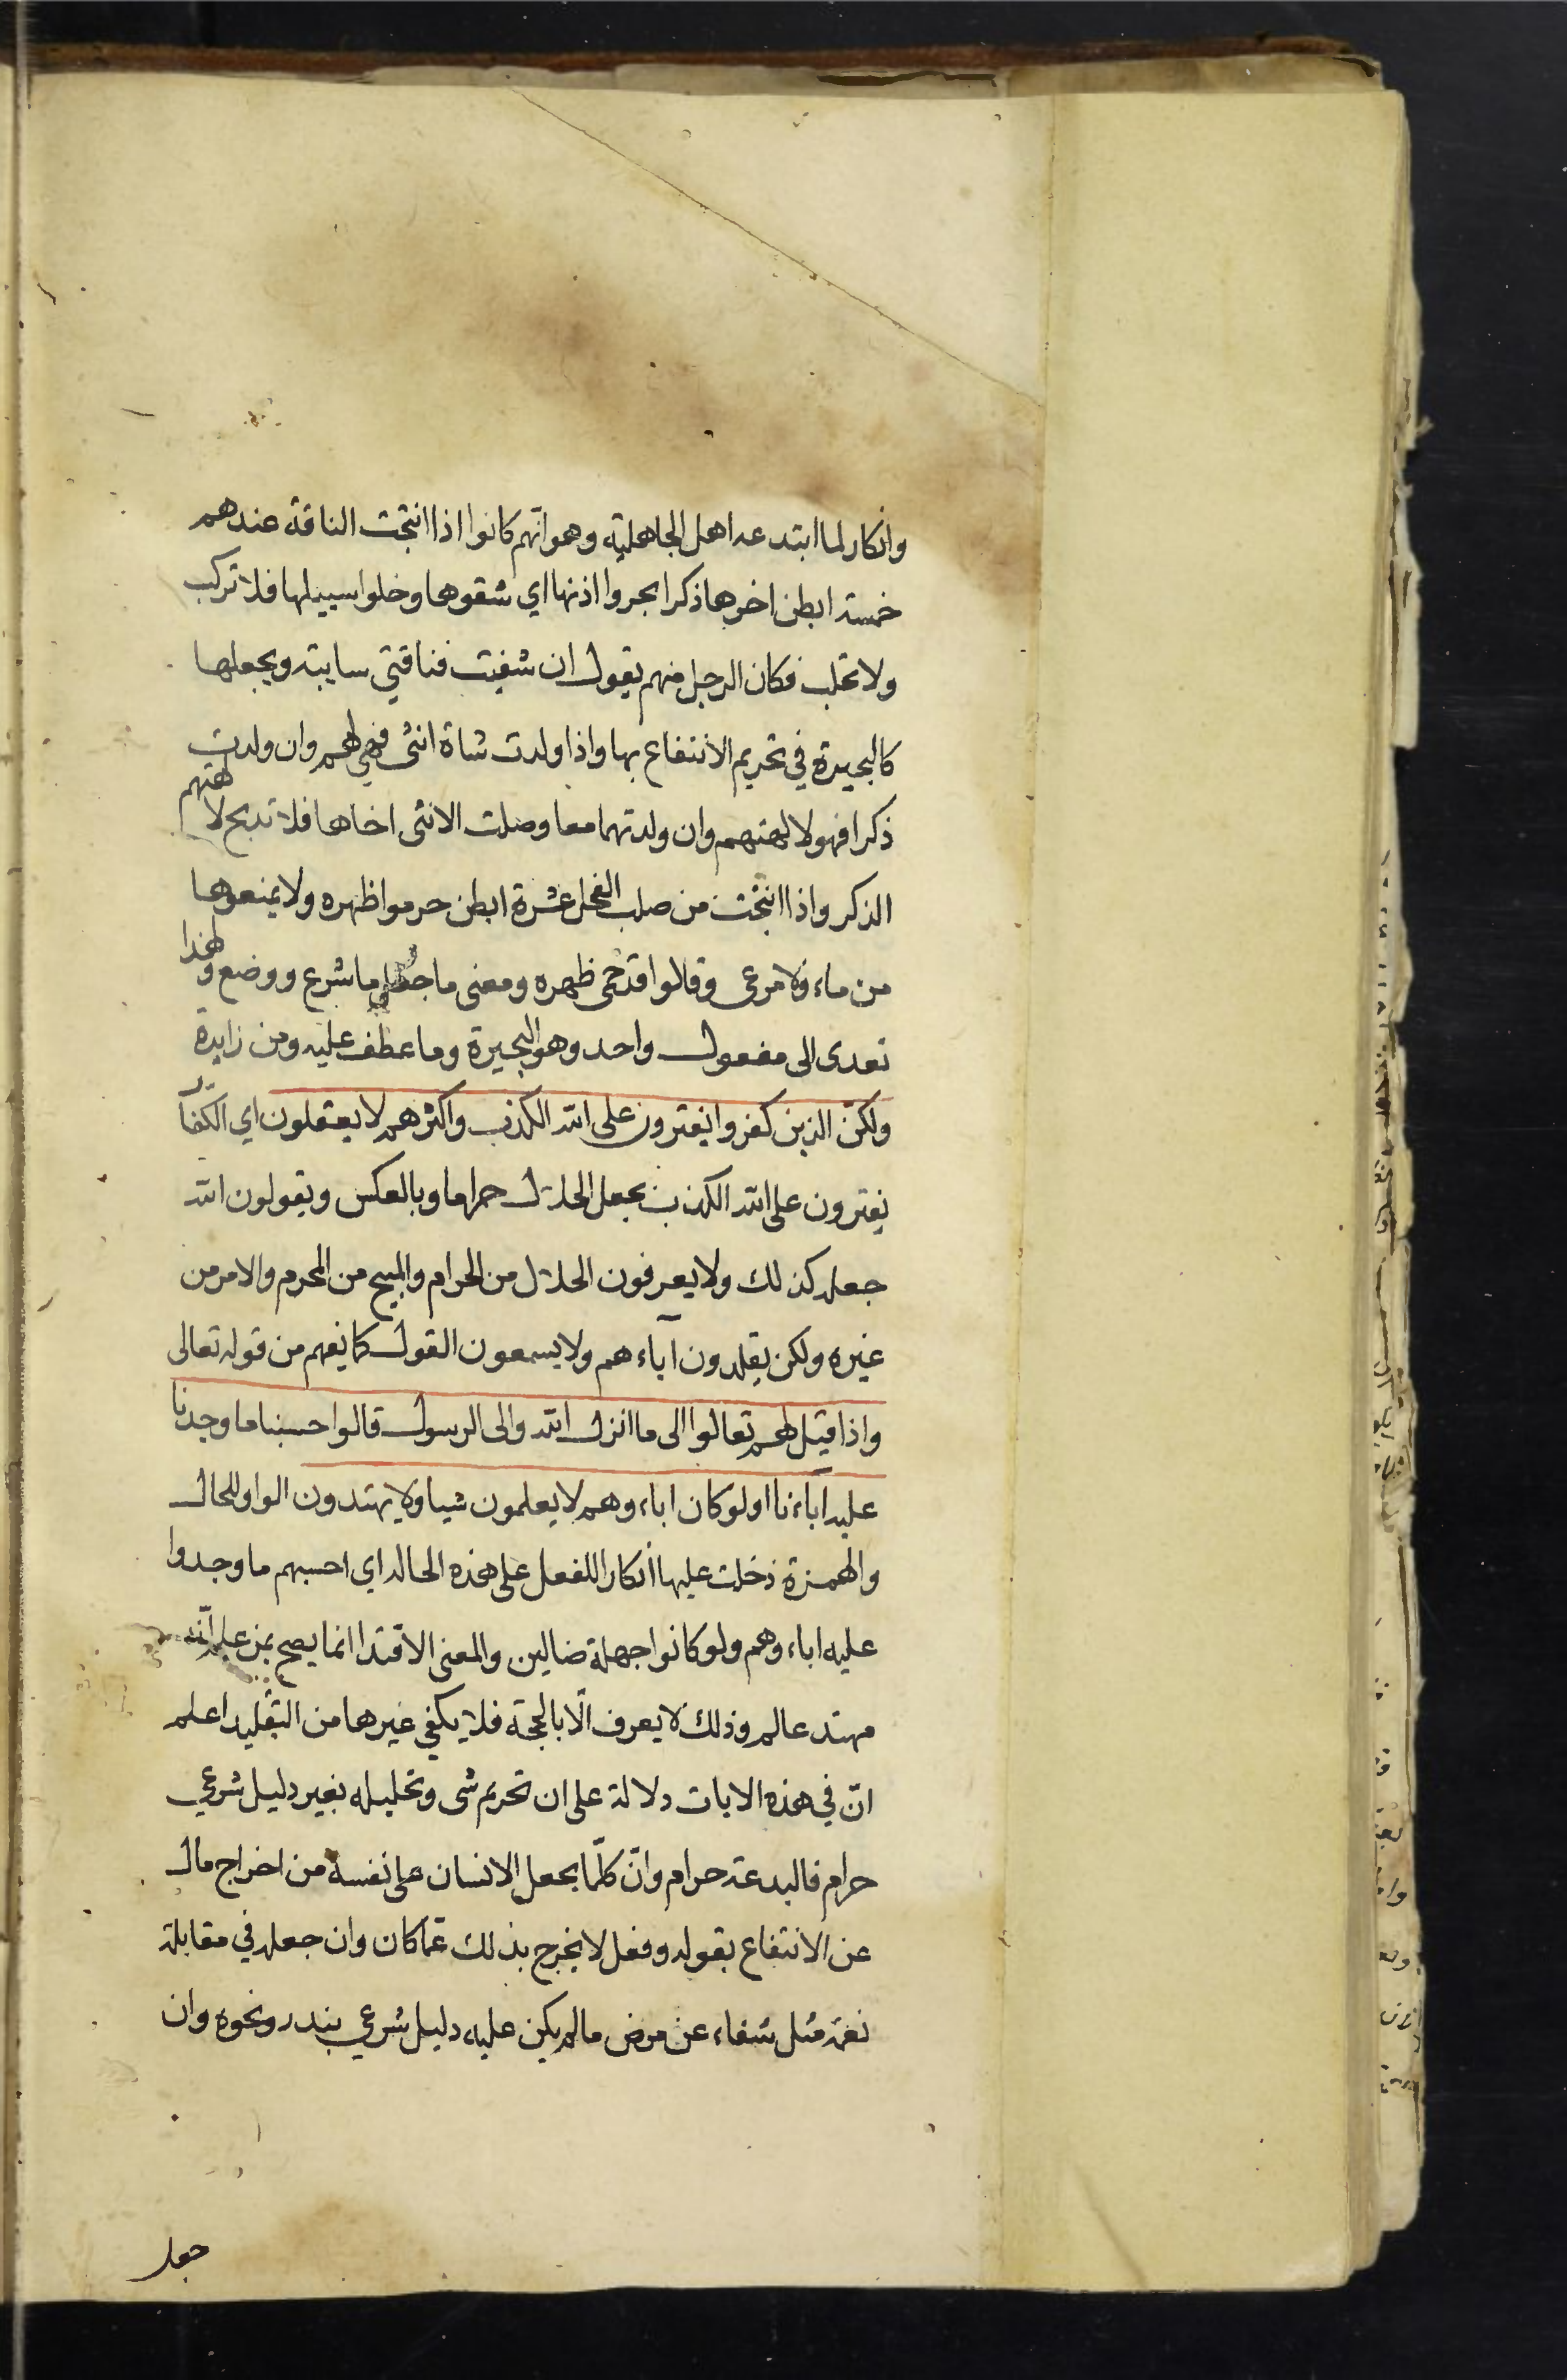 وانكار لما ابتدعه اهل الجاهلية وهو انّهم كانوا اذا انتجت الناقة عندهم
خمسة ابطن اخرها ذكرا بحروا اذنها اي شقوها وخلوا سبيلها فلا تركب
ولا تحلب فكان الرجل منهم يقول ان شفيت فناقتي سايبة ويجعلها
كالبحيرة في تحريم الانتفاع بها واذا ولدت شاة انثى فهي لهم وان ولدت
ذكرا فهو لالهتهم وان ولدتهما معا وصلت الانثى اخاها فلا تذبح لالهتهم
الذكر واذا انتجت من صلب الفحل عشرة ابطن حرموا ظهره ولا يمنعوها
من ماء ولا مرعى وقالوا قد حمى ظهره ومعنى ما جعل ما شرع ووضع ولهذا
تعدى الى مفعول واحد وهو البحيرة وما عطف عليه ومن زايدة
ولكنّ الذين كفروا يفترون على الله الكذب واكثرهم لا يعقلون اي الكفّار
يفترون على الله الكذب بجعل الحلال حراما وبالعكس ويقولون الله
جعله كذلك ولا يعرفون الحلال من الحرام والمبيح من المحرم والامر من
غيره ولكن يقلدون آباءهم ولا يسمعون القول كما يفهم من قوله تعالى
واذا قيل لهم تعالوا الى ما انزل الله والى الرسول قالوا حسبنا ما وجدنا
عليه آباءنا اولو كان اباءوهم لا يعلمون شيا ولا يهتدون الواو للحال
والهمزة دخلت عليها انكارا للفعل على هذه الحالة اي احسبهم ما وجدوا
عليه اباءوهم ولو كانوا جهلة ضالين والمعنى الاقتدا انما يصح بمن علم انّه
مهتد عالم وذلك لا يعرف الّا بالحجّة فلا يكفي غيرها من التقليد اعلم
انّ في هذه الايات دلالة على ان تحريم شى وتحليله بغير دليل شرعي
حرام فالبدعة حرام وانّ كلّما يجعل الانسان على نفسه من اخراج مال
عن الانتفاع بقوله وفعل لا يخرج بذلك عمّا كان وان جعله في مقابلة
نعمة مثل شفاء عن مرض ما لم يكن عليه دليل شرعي بنذر ونحوه وان
جعل